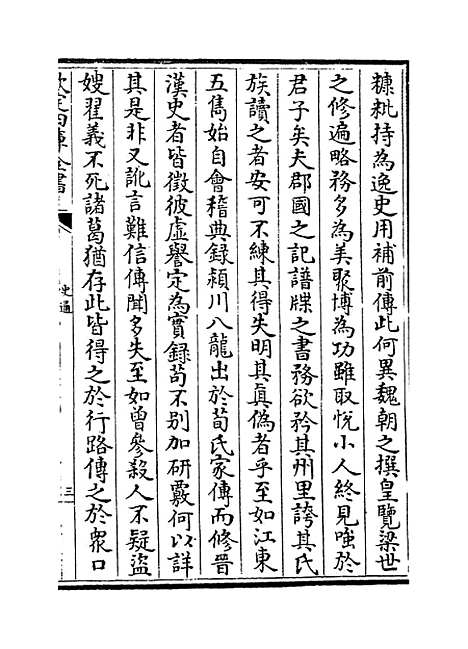 糠粃持為逸史用補前傳此何異魏朝之撰皇覽梁世
之修遍略務多為美聚博為功雖取悅小人終見嗤於
君子矣夫郡國之記譜牒之書務欲矜其州里誇其氏
族讀之者安可不練其得失明其真偽者乎至如江東
五儁始自會稽典録潁川八龍出於荀氏家傳而修晉
漢史者皆徵彼虛譽定為實録茍不别加研覈何以詳
其是非又訛言難信傳聞多失至如曾參殺人不疑盗
嫂翟義不死諸葛猶存此皆得之於行路傳之於衆口
欽定四庫全書
史通
三